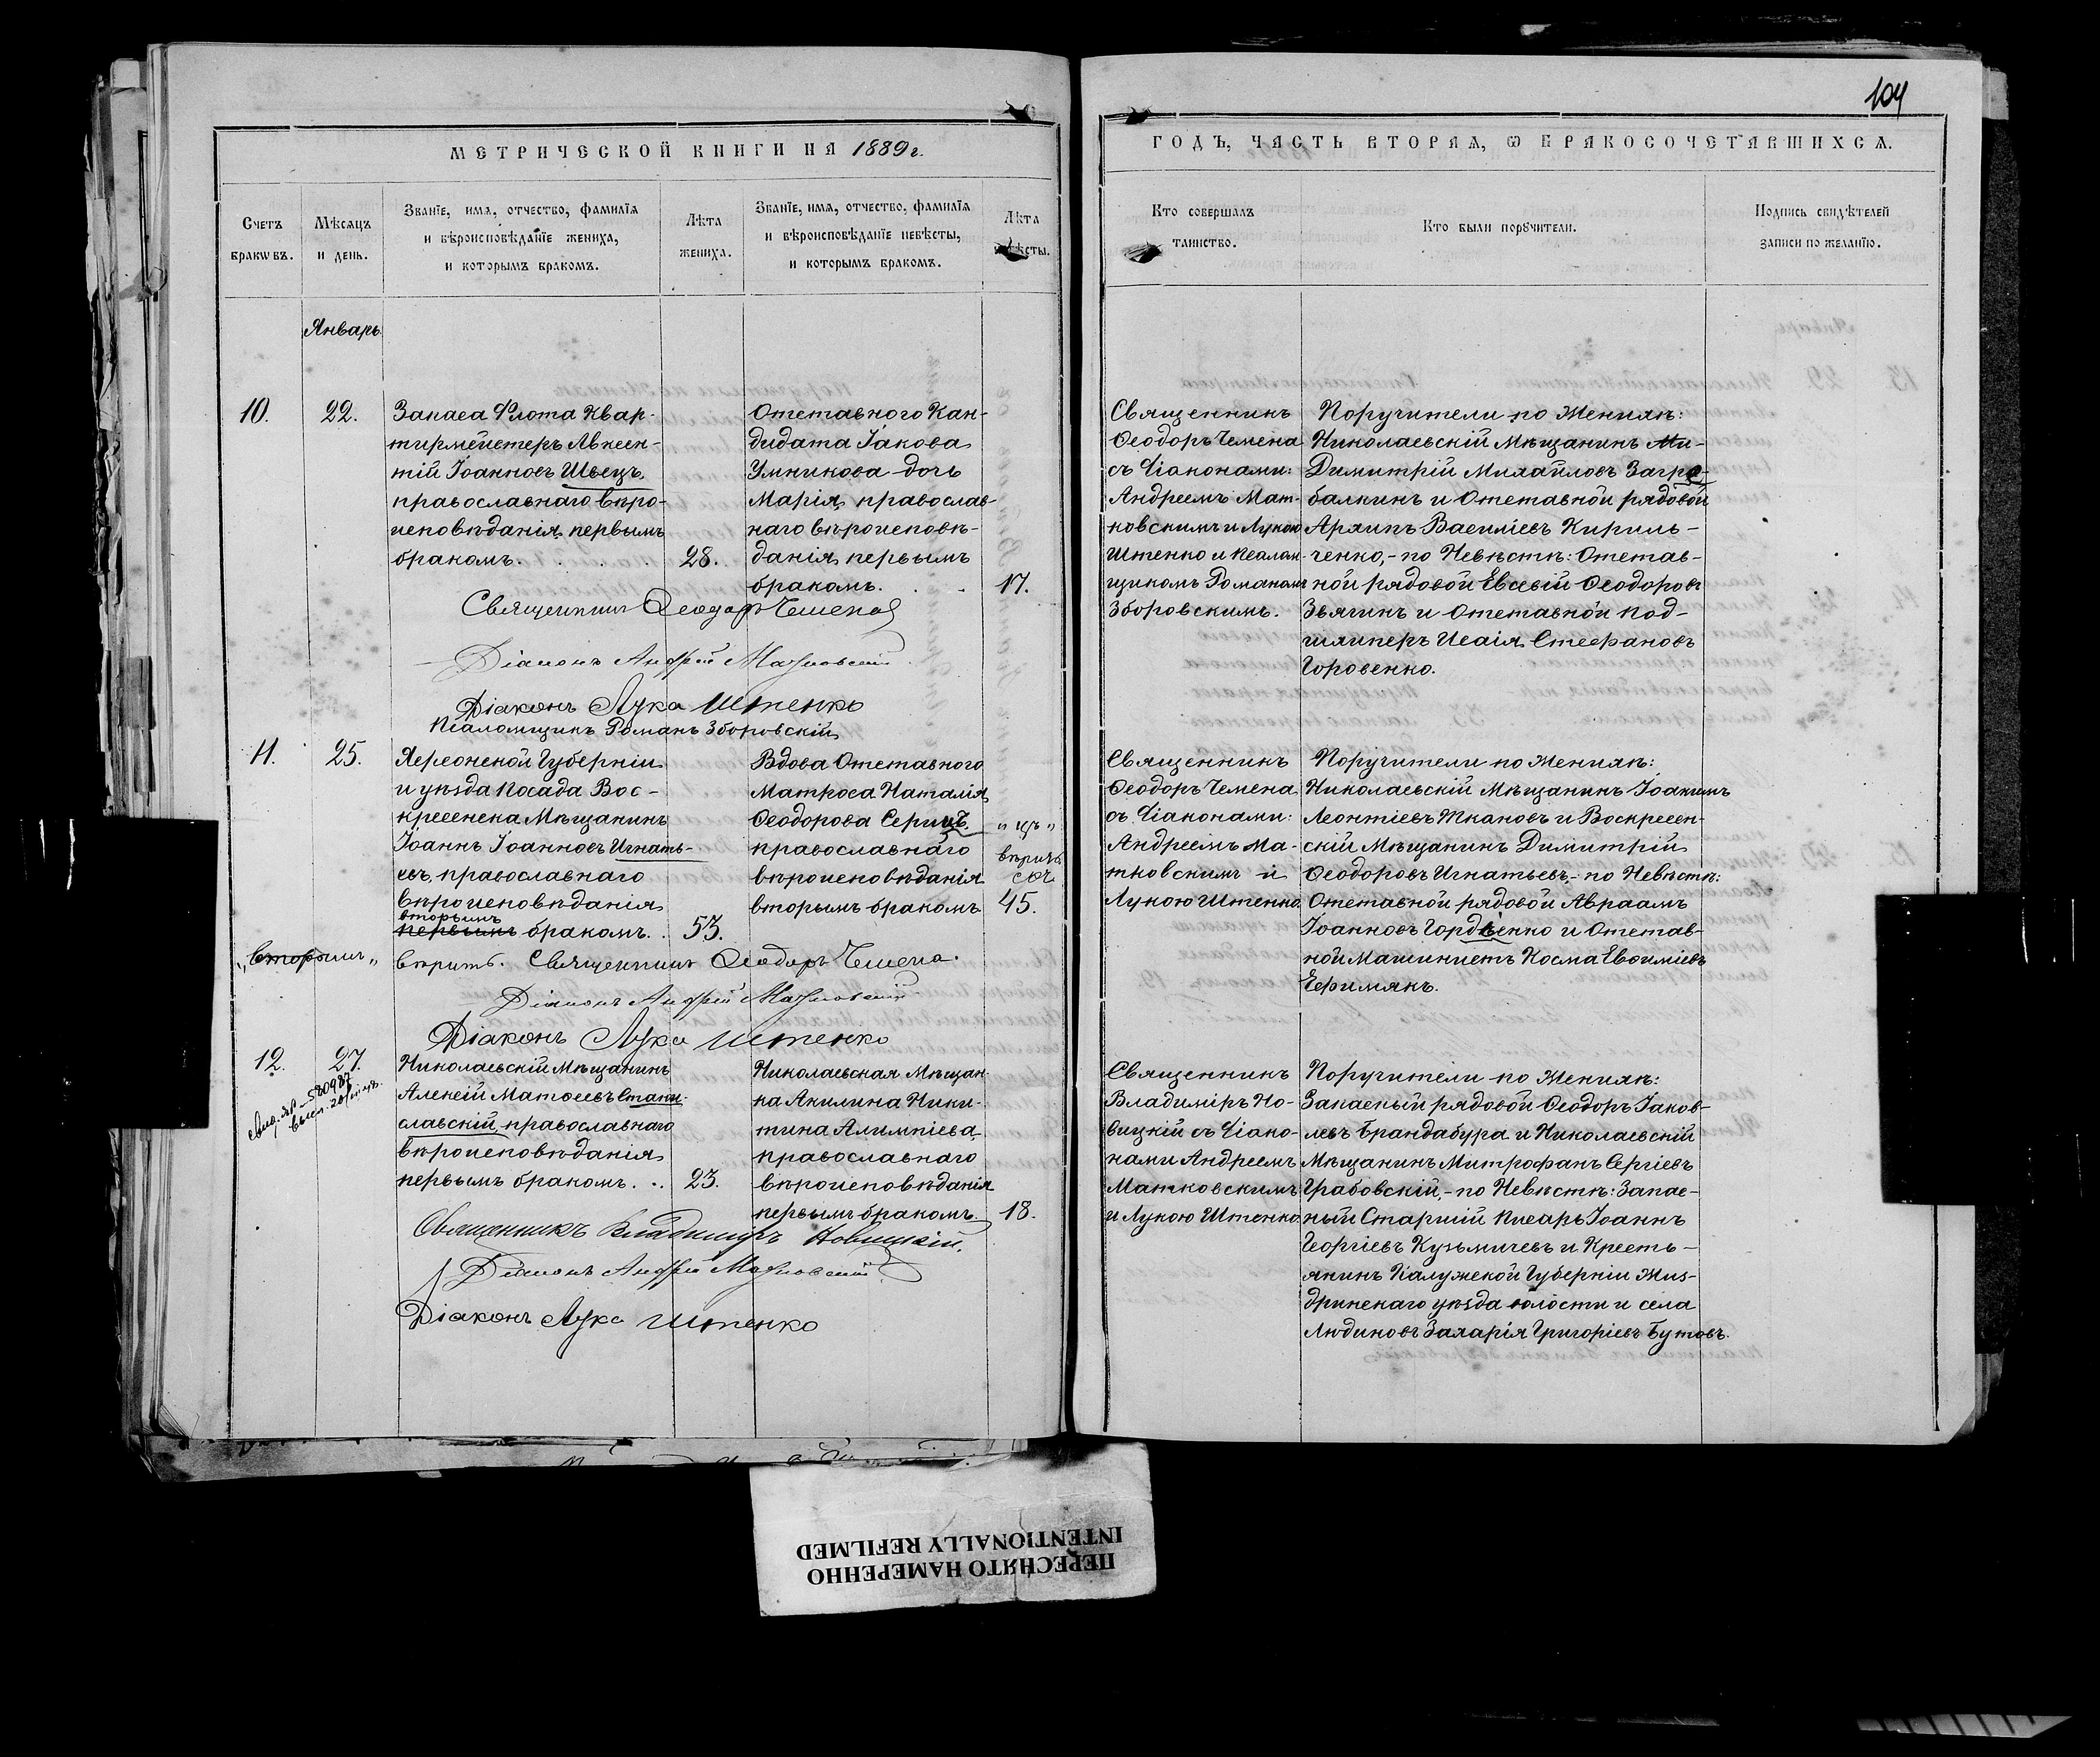 104
МЕТРИЧЕСКОЙ КНИГИ НА 1889 г.
Счетъ браковъ.
Мѣсяцъ и день.
Званіе, имя, отчество, фамилія и вѣроисповѣданіе жениха, и которымъ бракомъ.
Лѣта жениха.
Званіе, имя, отчество, фамилія и вѣроисповѣданіе невѣсты, и которымъ бракомъ.
Лѣта невѣсты.
Январь.
10.
22.
Запаса Флота Квар-
тирмейстеръ Авксен-
тій Іоанновъ Швецъ,
православнаго вѣро-
исповѣданія, первымъ
бракомъ.
28.
Отставного Кан-
дидата Іакова
Умникова дочь
Марія, православ-
наго вѣроисповѣ-
данія, первымъ
бракомъ.
17.
Священникъ Ѳеодоръ Чемена
Діаконъ Андрей Матковскій
Діаконъ Лука Иштенко
Псаломщикъ Романъ Зборовскій
11.
25.
Херсонской Губерніи
и уѣзда посада Вос-
кресенска Мѣщанинъ
Іоаннъ Іоанновъ Игнать-
евъ, православнаго
вѣроисповѣданія
вторымъ
первымъ бракомъ.
53.
Вдова Отставного
Матроса Наталія
Ѳеодорова Сергіецъ,
православнаго
вѣроисповѣданія
вторымъ бракомъ
„ цъ „
вѣрить
45.
„вторымъ„ вѣрить. Священникъ Ѳеодоръ Чемена.
Діаконъ Андрей Матковскій
Діаконъ Лука Иштенко
12.
27.
Николаевскій Мѣщанинъ
Алексій Матѳеевъ Стани-
славскій, православнаго
вѣроисповѣданія
первымъ бракомъ.
23.
Николаевская Мѣщан-
ка Акилина Ники-
тина Алимпіева,
православнаго
вѣроисповѣданія
первымъ бракомъ.
18.
Священникъ Владиміръ Новицкій.
Діаконъ Андрей Матковскій
Діаконъ Лука Иштенко
ГОДЪ, ЧАСТЬ ВТОРАЯ, Ѡ БРАКОСОЧЕТАВШИХСЯ.
Кто совершалъ таинство.
Кто были поручители.
Подпись свидѣтелей записи по желанію.
Священникъ
Ѳеодоръ Чемена
съ Діаконами:
Андреемъ Мат-
ковскимъ и Лукою
Иштенко и Псалом-
щикомъ Романомъ
Зборовскимъ.
Поручители по Женихѣ:
Николаевскій Мѣщанинъ Ми-
Димитрій Михайловъ Загре-
балкинъ и Отставной рядовой
Архипъ Васильевъ Кириль-
ченко,- по Невѣстѣ: Отстав-
ной рядовой Евсевій Ѳеодоровъ
Звягинъ и Отставной Под-
шхиперъ Исаія Стефановъ
Горовенко.
Священникъ
Ѳеодоръ Чемена
съ Діаконами:
Андреемъ Ма-
тковскимъ и
Лукою Иштенко
Поручители по Женихѣ:
Николаевскій Мѣщанинъ Іоакимъ
Леонтіевъ Ткановъ и Воскресен-
скій Мѣщанинъ Димитрій
Ѳеодоровъ Игнатьевъ,- по Невѣстѣ:
Отставной рядовой Авраамъ
Іоанновъ Гордіенко и Отстав-
ной Машинистъ Косма Евѳиміевъ
Ефимякъ.
Священникъ
Владиміръ Но-
вицкій съ Діако-
нами Андреемъ
Матковскимъ
и Лукою Иштенко
Поручители по Женихѣ:
Запасный рядовой Ѳеодоръ Іаков-
левъ Брандабура и Николаевскій
Мѣщанинъ Митрофанъ Сергіевъ
Грабовскій,- по Невѣстѣ: Запас-
ный Старшій Писарь Іоаннъ
Георгіевъ Кузьмичевъ и Кресть-
янинъ Калужской Губерніи Жиз-
дринскаго уѣзда волости и села
Людиновъ Захарія Григоріевъ Бутовъ.
ПЕРЕСНЯТО НАМЕРЕННО
INTENTIONALLY REFILMED